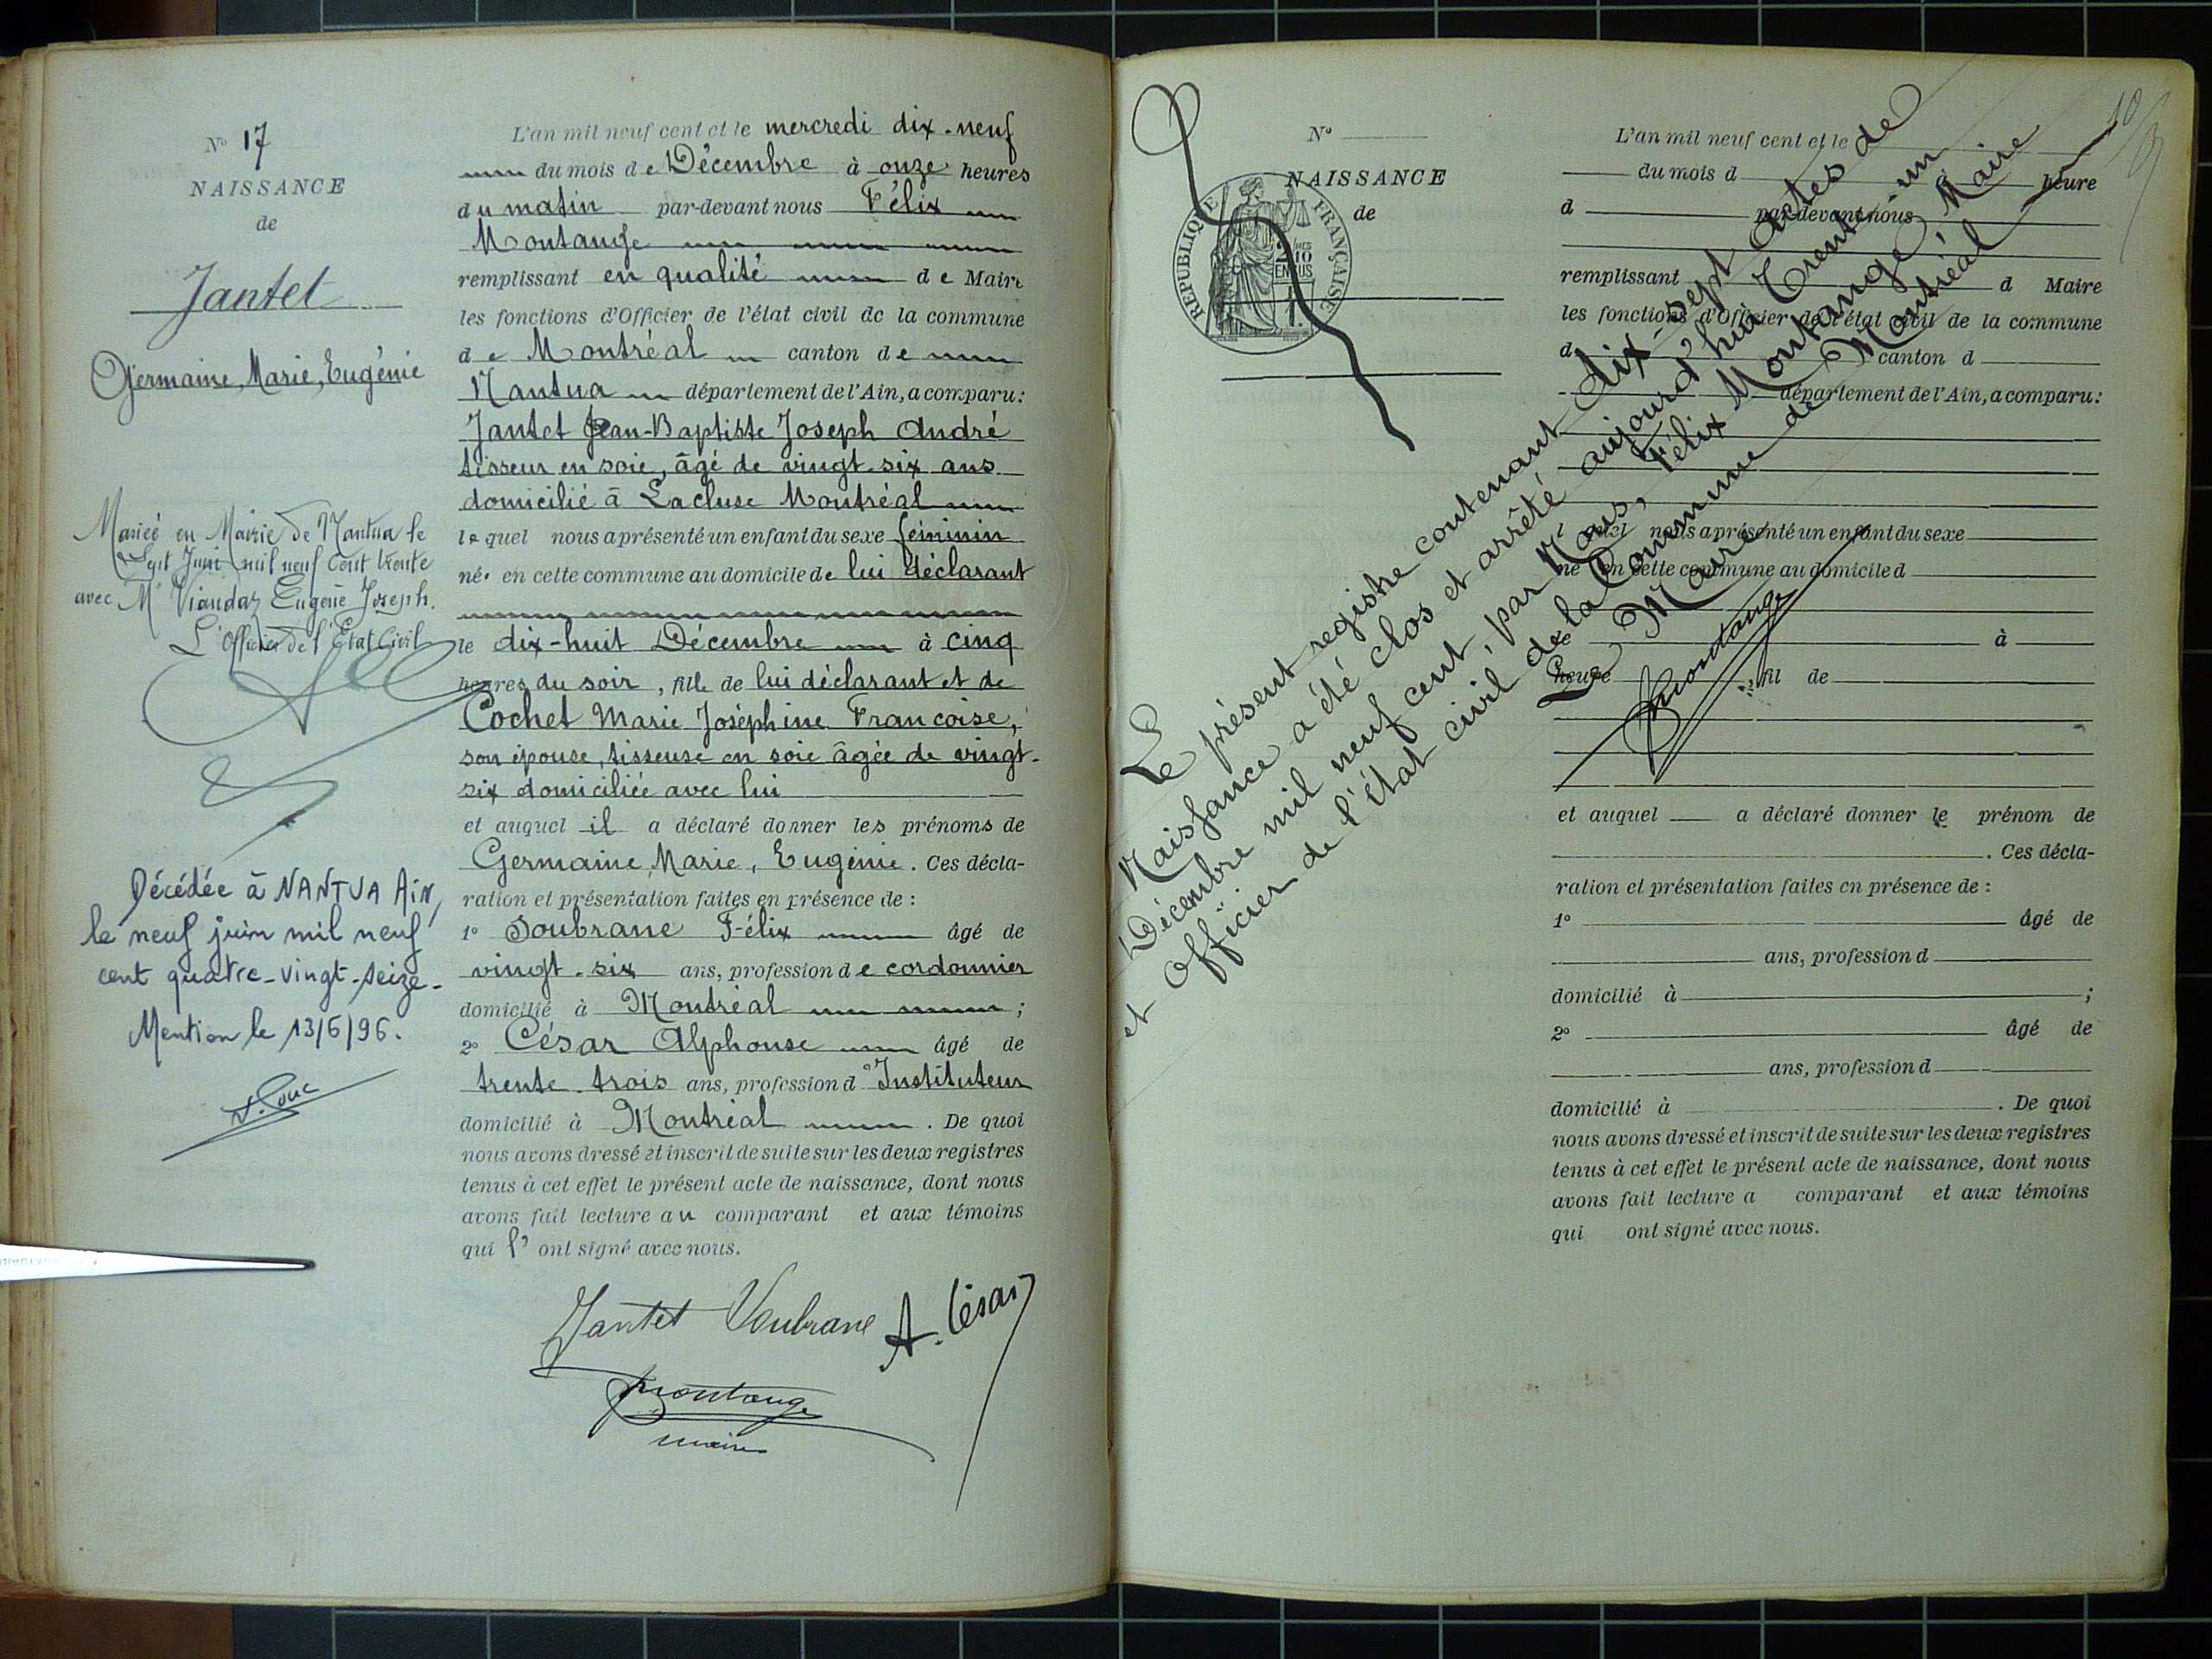 N° 17
NAISSANCE
de
Jantet
Germaine, Marie, Eugénie
Mariée en Mairie de Nantua le
Sept Juin mil neuf Cent trente
avec Mr Viandaz Eugène Joseph.
L'Officier de l'Etat Civil
Décédée à NANTUA Ain,
le neuf juin mil neuf
cent quatre-vingt-seize-
Mention le 13/6/96.
L'an mil neuf cent et le mercredi dix-neuf
du mois de Décembre à onze heures
du matin par-devant nous Félix
Montange
remplissant en qualité de Maire
les fonctions d'Officier de l'état civil de la commune
de Montréal canton de
Nantua département de l'Ain, a comparu:
Jantet Jean-Baptiste Joseph André
tisseur en soie, âgé de vingt-six ans
domicilié à Lacluse Montréal
lequel nous a présenté un enfant du sexe féminin
née en cette commune au domicile de lui déclarant
le dix-huit Décembre à cinq
heures du soir, fille de lui déclarant et de
Cochet Marie Joséphine Francoise,
son épouse, tisseuse en soie âgée de vingt-
six domiciliée avec lui
et auquel il a déclaré donner les prénoms de
Germaine, Marie, Eugénie. Ces décla-
ration et présentation faites en présence de :
1° Soubrane Félix âgé de
vingt-six ans, profession de cordonnier
domicilié à Montréal ;
2° César Alphonse âgé de
trente-trois ans, profession d'Instituteur
domicilié à Montréal . De quoi
nous avons dressé et inscrit de suite sur les deux registres
tenus à cet effet le présent acte de naissance, dont nous
avons fait lecture au comparant et aux témoins
qui l' ont signé avec nous.
Jantet Soubrane A. César
Montange
maire
10
N°
NAISSANCE
de
RÉPUBLIQUE FRANÇAISE
2/10
EN SUS
1f.
L'an mil neuf cent et le
du mois d à heure
d par-devant nous
remplissant d Maire
les fonctions d'Officier de l'état civil de la commune
d canton d
département de l'Ain, a comparu:
l quel nous a présenté un enfant du sexe
né en cette commune au domicile d
le à
heure , fil de
et auquel a déclaré donner le prénom de
. Ces décla-
ration et présentation faites en présence de :
1° âgé de
ans, profession d
domicilié à ;
2° âgé de
ans, profession d
domicilié à . De quoi
nous avons dressé et inscrit de suite sur les deux registres
tenus à cet effet le présent acte de naissance, dont nous
avons fait lecture a comparant et aux témoins
qui ont signé avec nous.
Le présent registre contenant dix-sept actes de
Naissance a été clos et arrêté aujourd'hui Trente-un
Décembre mil neuf cent, par Nous, Félix Montange, Maire
et officier de l'état civil de la Commune de Montréal
Le Maire
Montange